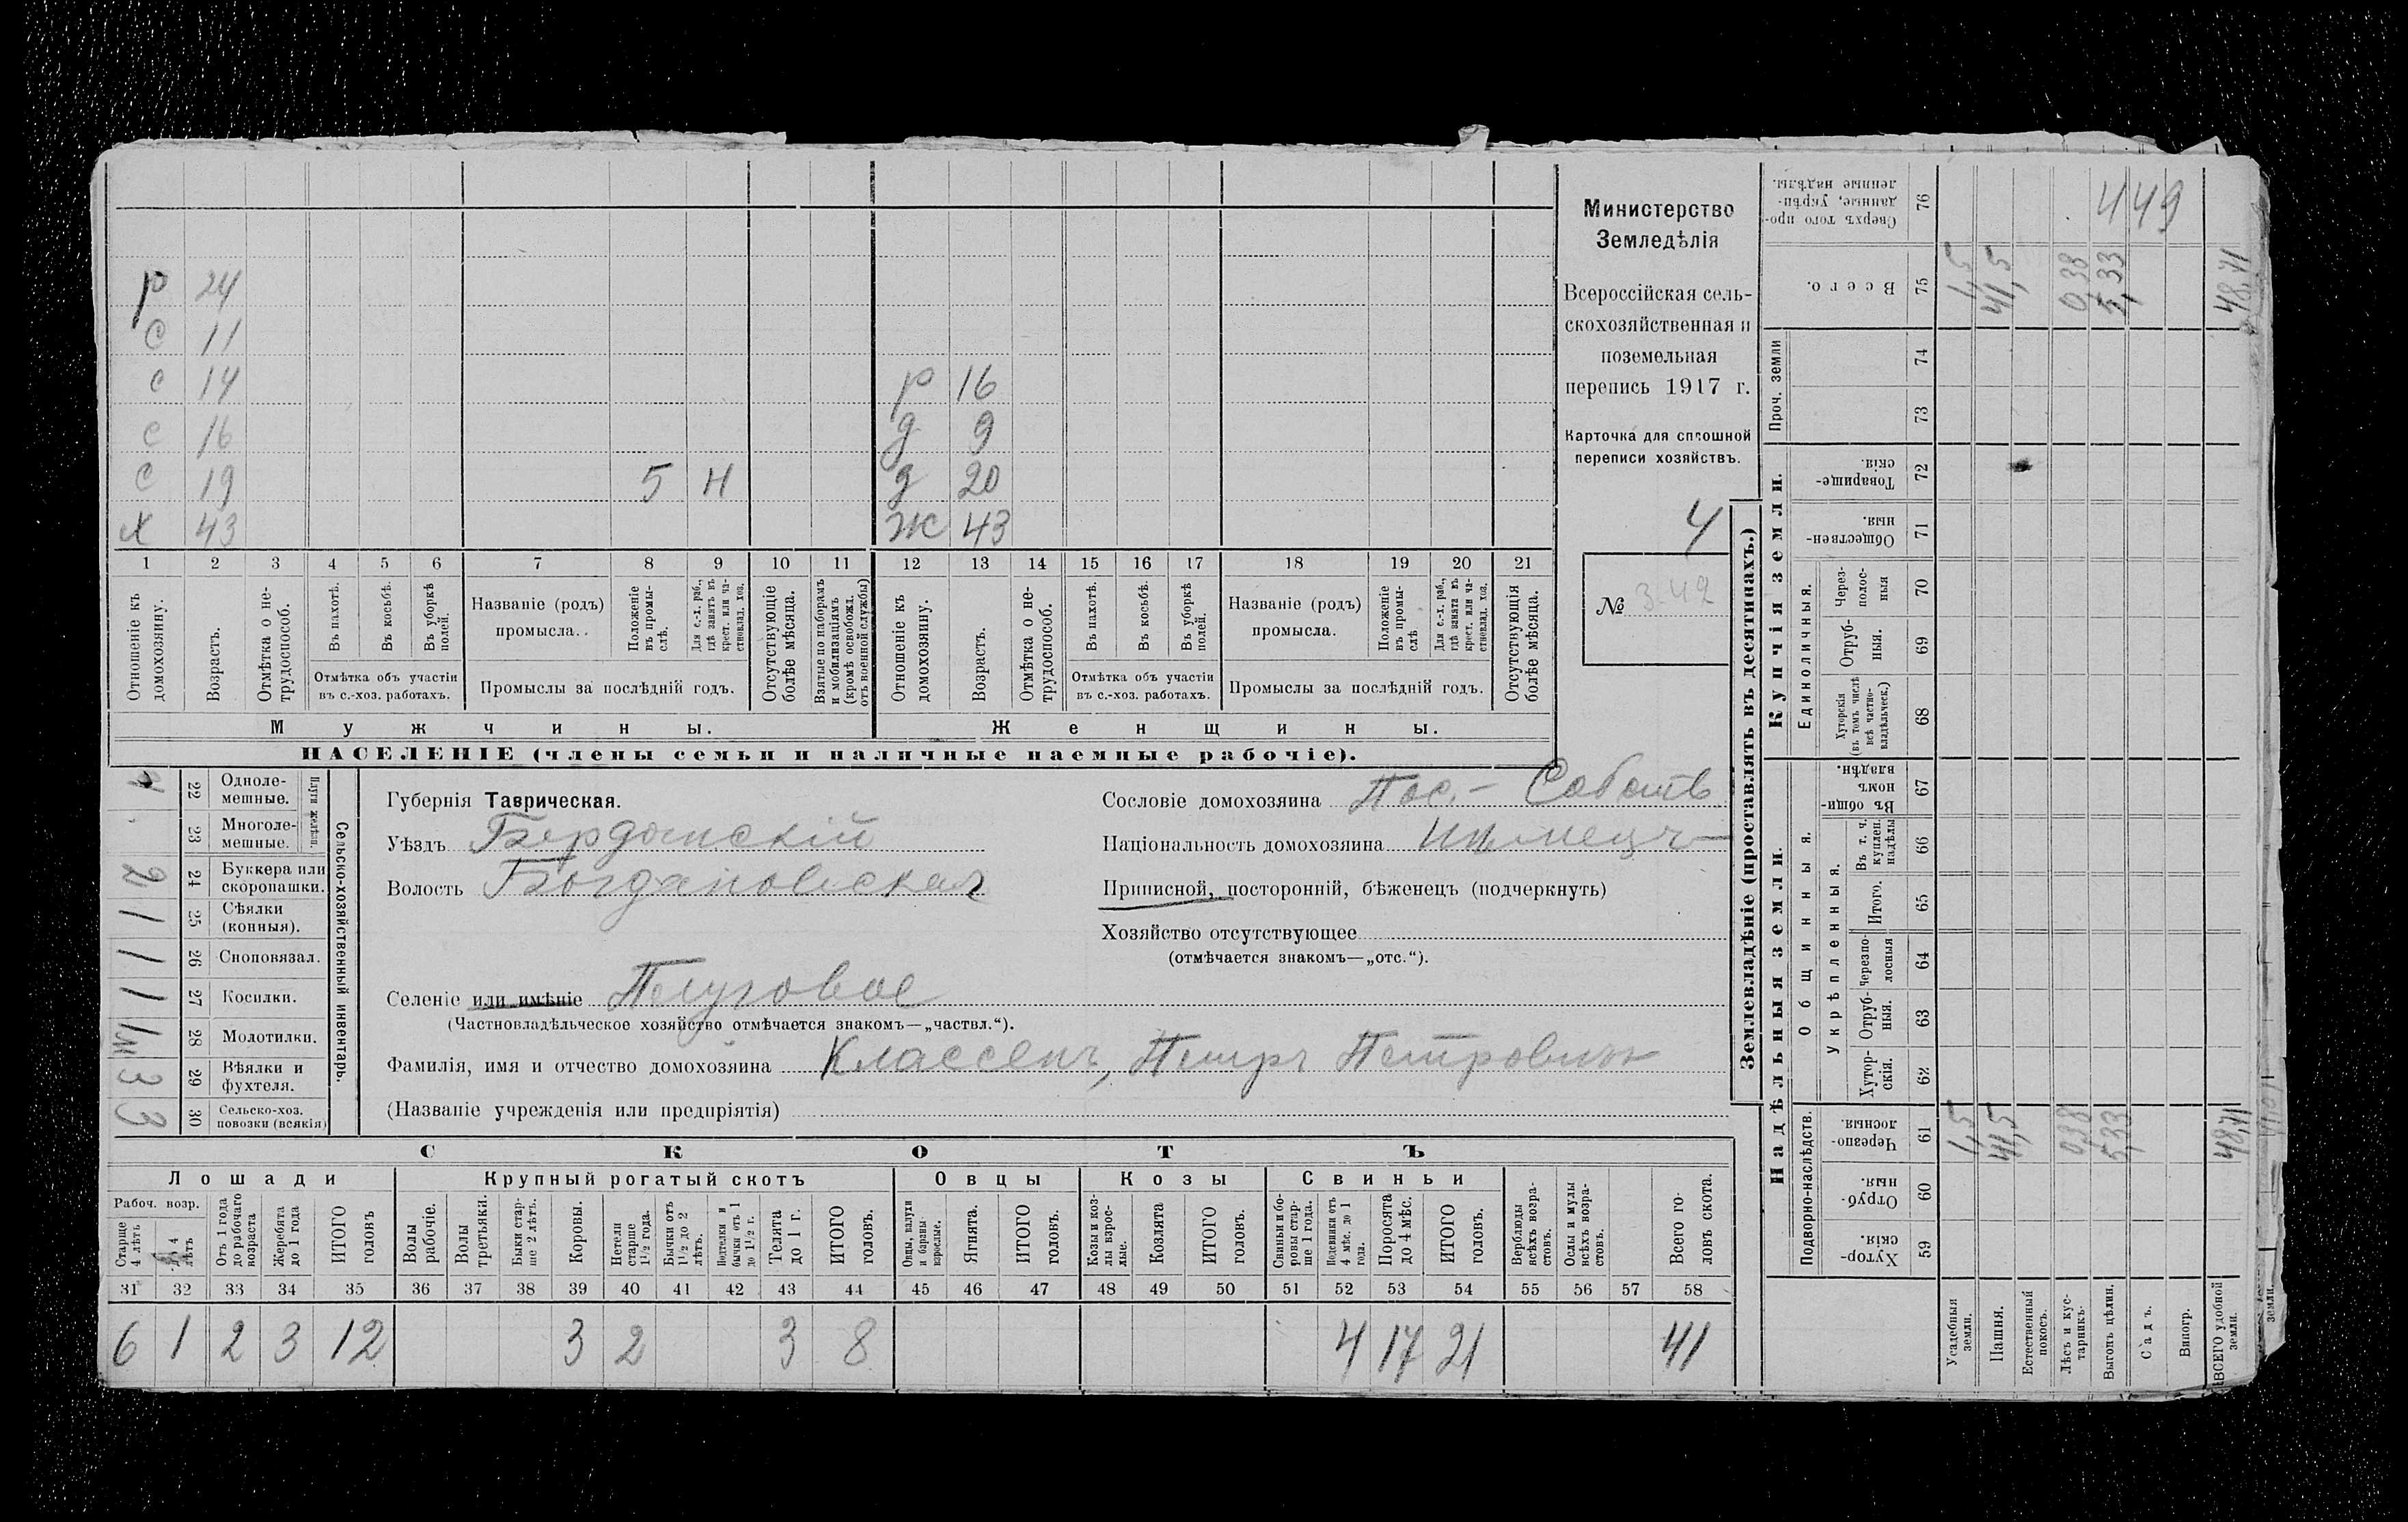 р 24
с 11
с 14 р 16
с 16 д 9
с 19 5 Н д 20
х 43 ж 43
1 2 3 4 5 6 7 8 9 10 11 12 13 14 15 16 17 18 19 20 21
Отношеніе къ домохозяину.
Возрастъ.
Отмѣтка о не-
трудоспособ.
Въ пахотѣ.
Въ косьбѣ.
Въ уборкѣ
полей.
Отмѣтка объ участіи
въ с.-хоз. работахъ.
Названіе (родъ)
промысла.
Положеніе
въ промы-
слѣ.
Для с.-х. раб.,
гдѣ занятъ въ
крест. или ча-
стновлад. хоз.
Промыслы за послѣдній годъ.
Отсутствующіе
болѣе мѣсяца.
Взятые по наборамъ
и мобилизаціямъ
(кромѣ освобожд.
отъ военной службы)
Отношеніе къ
домохозяину.
Возрастъ.
Отмѣтка о не-
трудоспособ.
Въ пахотѣ.
Въ косьбѣ.
Въ уборкѣ
полей.
Отмѣтка объ участіи
въ с.-хоз. работахъ.
Названіе (родъ)
промысла.
Положеніе
въ промы-
слѣ
Для с.-х. раб.,
гдѣ занята въ
крест. или ча-
стновлад. хоз.
Промыслы за послѣдній годъ.
Отсутствующія
болѣе мѣсяца.
Мужчины.
Женщины.
НАСЕЛЕНІЕ (члены семьи и наличные наемные рабочіе).
Министерство
Земледѣлія
Всероссійская сель-
скохозяйственная и
поземельная
перепись 1917 г.
Карточка для сплошной
переписи хозяйствъ.
4
№ 342
Сельско-хозяйственный инвентарь.
Плуги желѣзн.
22 Одноле-
мешные.
23 Многоле-
мешные.
24 Буккера или
скоропашки. 2
25 Сѣялки
(конныя). 1
26 Сноповязал. 1
27 Косилки. 1
28 Молотилки.
29 Вѣялки и
фухтеля. 3
30 Сельско-хоз.
повозки (всякія) 3
Губернія Таврическая.
Уѣздъ Бердянскій
Волость Богдановская
Селеніе или имѣніе
(Частновладѣльческое хозяйство отмѣчается знакомъ—„частвл.“).
Фамилія, имя и отчество домохозяина Классенъ, Петръ Петровичъ
(Названіе учрежденія или предпріятія)
Сословіе домохозяина Пос.- Собств
Національность домохозяина нѣмецъ
Приписной, посторонній, бѣженецъ (подчеркнуть)
Хозяйство отсутствующее
(отмѣчается знакомъ—„отс.“).
СКОТЪ
Лошади
Рабоч. возр.
Старше
4 лѣтъ
4
лѣтъ
Отъ 1 года
до рабочаго
возраста
Жеребята
до 1 года
ИТОГО
головъ
Крупный рогатый скотъ
Волы
рабочіе.
Волы
третьяки.
Быки стар-
ше 2 лѣтъ.
Коровы.
Нетели
старше
1½ года.
Бычки отъ
1½ до 2
лѣтъ.
Подтелки и
бычки отъ 1
до 1½ г.
Телята
до 1 г.
ИТОГО
головъ.
Овцы
Овцы, валухи
и бараны
взрослые.
Ягнята.
ИТОГО
головъ.
Козы
Козы и коз-
лы взрос-
лые.
Козлята
ИТОГО
головъ.
Свиньи
Свиньи и бо-
ровы стар-
ше 1 года.
Подсвинки отъ
4 мѣс. до 1
года.
Поросята
до 4 мѣс.
ИТОГО
головъ.
Верблюды
всѣхъ возра-
стовъ.
Ослы и мулы
всѣхъ возра-
стовъ.
Всего го-
ловъ скота.
31 32 33 34 35 36 37 38 39 40 41 42 43 44 45 46 47 48 49 50 51 52 53 54 55 56 57 58
6 1 2 3 12 3 2 3 8 4 17 21 41
Землевладѣніе (проставлять въ десятинахъ.)
Надѣльныя земли.
Подворно-наслѣдств.
Хутор-
скія. 59
Отруб-
ныя. 60
Черезпо-
лосныя. 61
Общинныя.
Укрѣпленныя.
Хутор-
скія. 62
Отруб-
ныя. 63
Черезпо-
лосныя 64
Итого. 65
Въ т. ч.
куплен.
надѣлы 66
Въ общи-
номъ
владѣн. 67
Купчія земли.
Единоличныя.
Хуторскія
(въ томъ числѣ
всѣ частно-
владѣльческ.) 68
Отруб-
ныя. 69
Через-
полос-
ныя 70
Обществен-
ныя. 71
Товарище-
скія. 72
Проч. земли
73
74
Всего. 75
Сверхъ того про-
данные, укрѣп-
ленные надѣлы. 76
449
Усадебныя
земли. 1,5 1,5
Пашня. 41,5 41,5
Естественный
покосъ.
Лѣсъ и кус-
тарникъ. 0,38 0,38
Выгонъ цѣлин. 5,33 5,33
Садъ.
Виногр.
ВСЕГО удобной
земли. 48,71 48,71
земли.